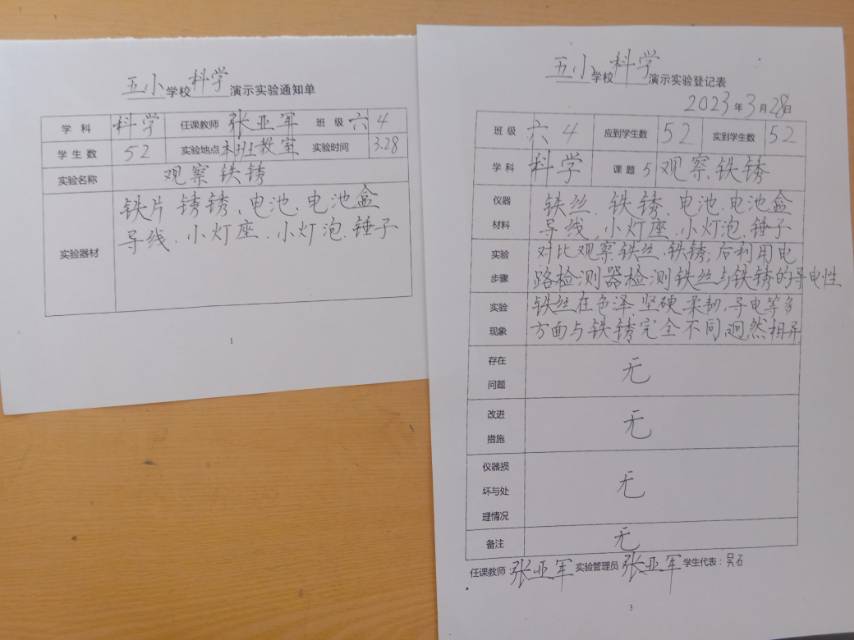 五小学校科学演示实验通知单
学科 科学 任课教师 张亚军 班级 六4
学生数 52 实验地点 本班教室 实验时间 3.28
实验名称 观察铁锈
实验器材 铁片 锈锈、电池、电池盒
导线、小灯座、小灯泡、锤子
1
五小学校科学演示实验登记表
2023年3月28日
班级 六4 应到学生数 52 实到学生数 52
学科 科学 课题 5 观察铁锈
仪器材料 铁丝、铁锈、电池、电池盒
导线、小灯座、小灯泡、锤子
实验步骤 对比观察铁丝、铁锈,后利用电
路检测器检测铁丝与铁锈的导电性
实验现象 铁丝在色泽、坚硬、柔韧、导电等多
方面与铁锈完全不同,迥然相异
存在问题 无
改进措施 无
仪器损坏与处理情况 无
备注 无
任课教师:张亚军 实验管理员 张亚军 学生代表:吴石
3